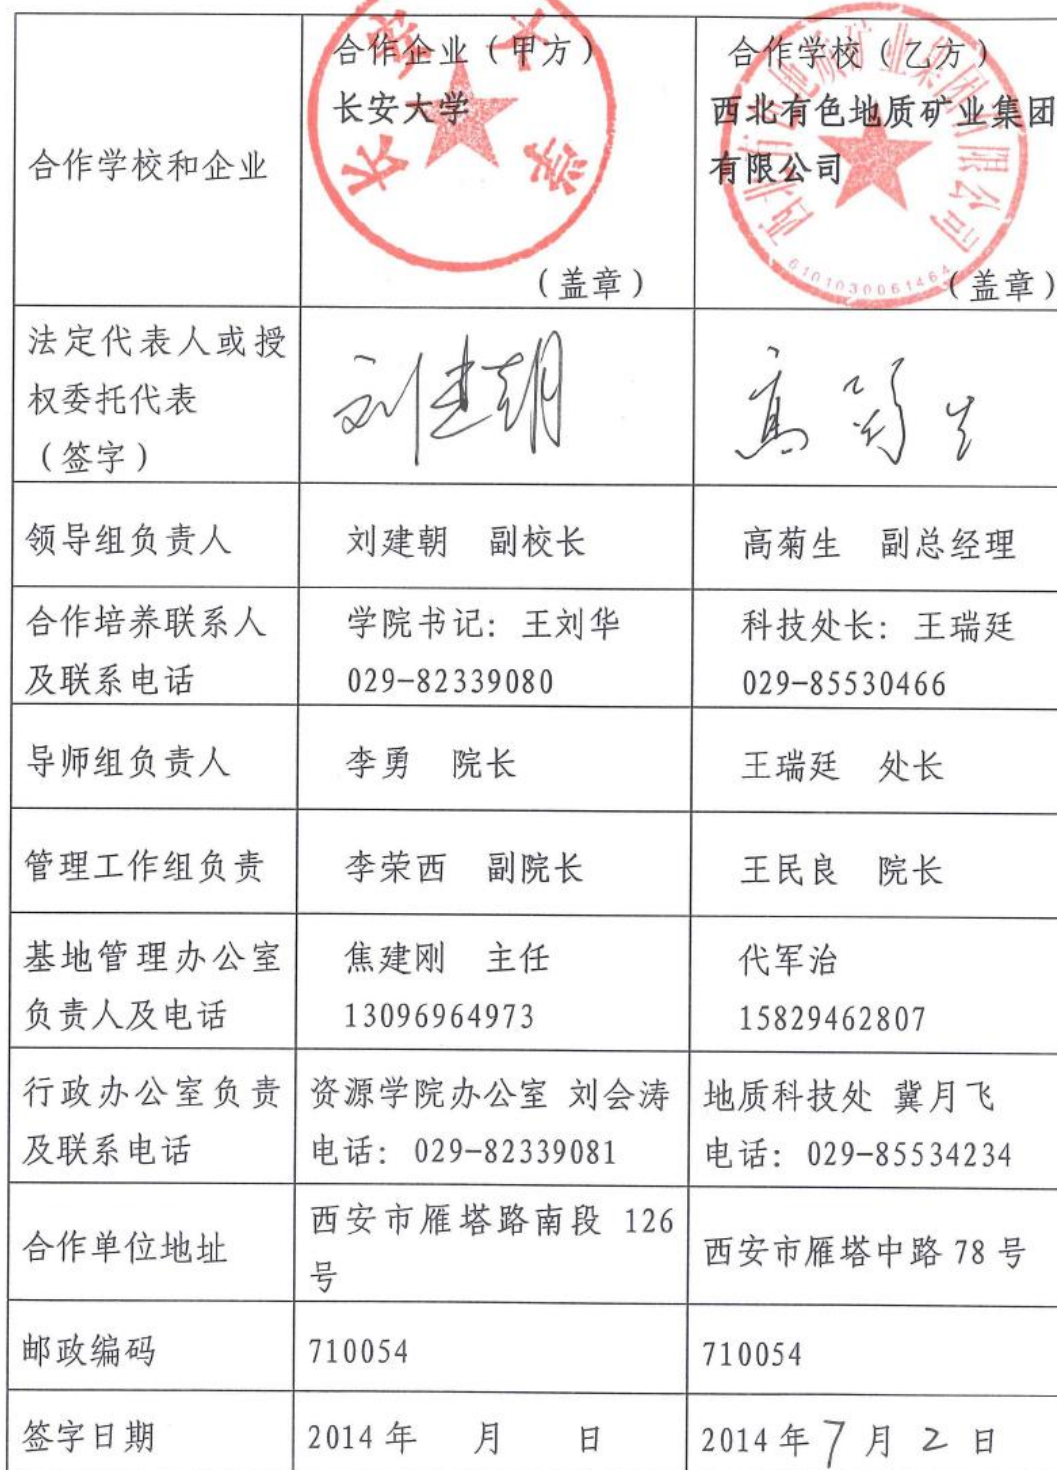 合作学校和企业
合作企业（甲方）
长安大学
（盖章）
长安大学
合作学校（乙方）
西北有色地质矿业集团
有限公司
（盖章）
西北有色地质矿业集团有限公司
6101030061464
法定代表人或授
权委托代表
（签字）
刘建朝
高菊生
领导组负责人
刘建朝 副校长
高菊生 副总经理
合作培养联系人
及联系电话
学院书记：王刘华
029-82339080
科技处长：王瑞廷
029-85530466
导师组负责人
李勇 院长
王瑞廷 处长
管理工作组负责
李荣西 副院长
王民良 院长
基地管理办公室
负责人及电话
焦建刚 主任
13096964973
代军治
15829462807
行政办公室负责
及联系电话
资源学院办公室 刘会涛
电话：029-82339081
地质科技处 冀月飞
电话：029-85534234
合作单位地址
西安市雁塔路南段 126
号
西安市雁塔中路 78 号
邮政编码
710054
710054
签字日期
2014 年 月 日
2014 年 7 月 2 日